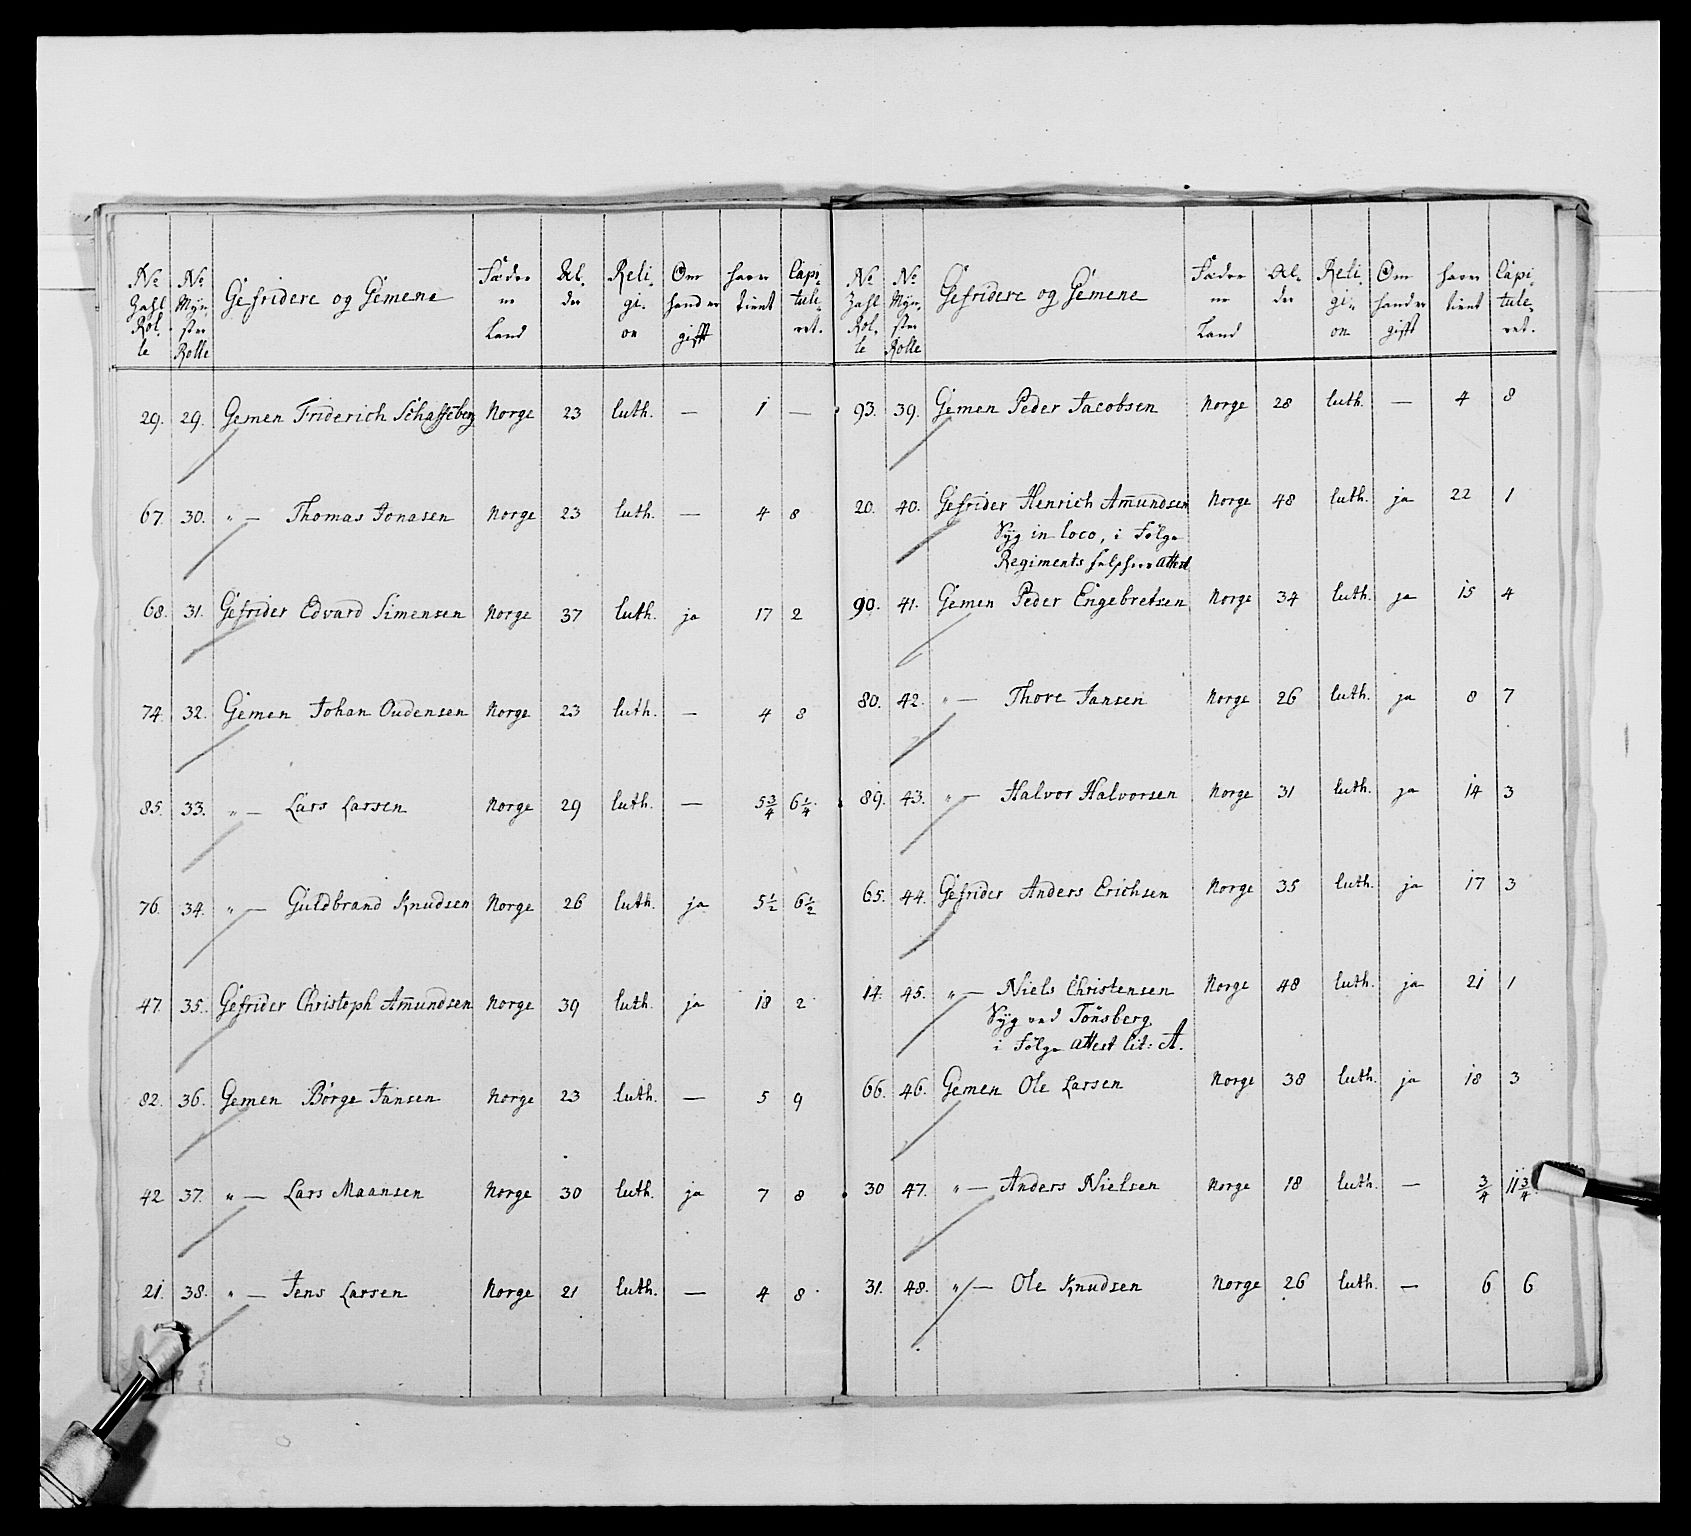 No Zahl Rol le | No Mÿn„ ster Rolle | Gefridere og Gemene | Fædre ne Land | Al„ der | Reli„ gi„ on | Om hand er gifft | haver tient | Capi„ tule„ ret.
29. | 29. | Gemen Friderich Schaffëberg | Norge | 23 | luth. | — | 1 | —
67. | 30. | „ — Thomas Jonasen | Norge | 23 | luth. | — | 4 | 8
68. | 31. | Gefrider Edvard Simensen | Norge | 37 | luth. | ja | 17 | 2
74. | 32. | Gemen Johan Oudensen | Norge | 23 | luth. | — | 4 | 8
85. | 33. | „ — Lars Larsen | Norge | 29 | luth. | — | 5¾ | 6¼
76. | 34. | „ — Guldbrand Knudsen | Norge | 26 | luth. | ja | 5½ | 6½
47. | 35. | Gefrider Christoph Am̄undsen | Norge | 39 | luth. | ja | 18 | 2
82. | 36. | Gemen Børge Jansen | Norge | 23 | luth. | — | 5 | 9
42 | 37. | „ — Lars Maansen | Norge | 30 | luth. | ja | 7 | 8
21. | 38. | „ — Jens Larsen | Norge | 21 | luth. | — | 4 | 8
No Zahl Rol„ le | No Mÿn„ ster Rolle | Gefridere og Gemene | Fædre ne Land | Al„ der | Reli„ gi„ on | Om hand er gift | haver tient | Capi„ tule„ ret.
93. | 39. | Gemen Peder Jacobsen | Norge | 28 | luth. | — | 4 | 8
20. | 40. | Gefrider Henrich Am̄undsen | Norge | 48 | luth. | ja | 22 | 1
Syg in loco, i Følge
Regiments felsheer attest
90. | 41. | Gemen Peder Engebretsen | Norge | 34 | luth. | ja | 15 | 4
80. | 42. | „ — Thore Jansen | Norge | 26 | luth. | ja | 8 | 7
89. | 43. | „ — Halvor Halvorsen | Norge | 31 | luth. | ja | 14 | 3
65. | 44. | Gefrider Anders Erichsen | Norge | 35 | luth. | ja | 17 | 3
14. | 45. | „ — Niels Christensen | Norge | 48 | luth. | ja | 21 | 1
Syg ved Tönsberg
i Følge attest lit: A.
66. | 46. | Gemen Ole Larsen | Norge | 38 | luth. | ja | 18 | 3
30 | 47. | „ — Anders Nielsen | Norge | 18 | luth. | — | ¾ | 11¾
31. | 48. | „ — Ole Knudsen | Norge | 26 | luth. | — | 6 | 6